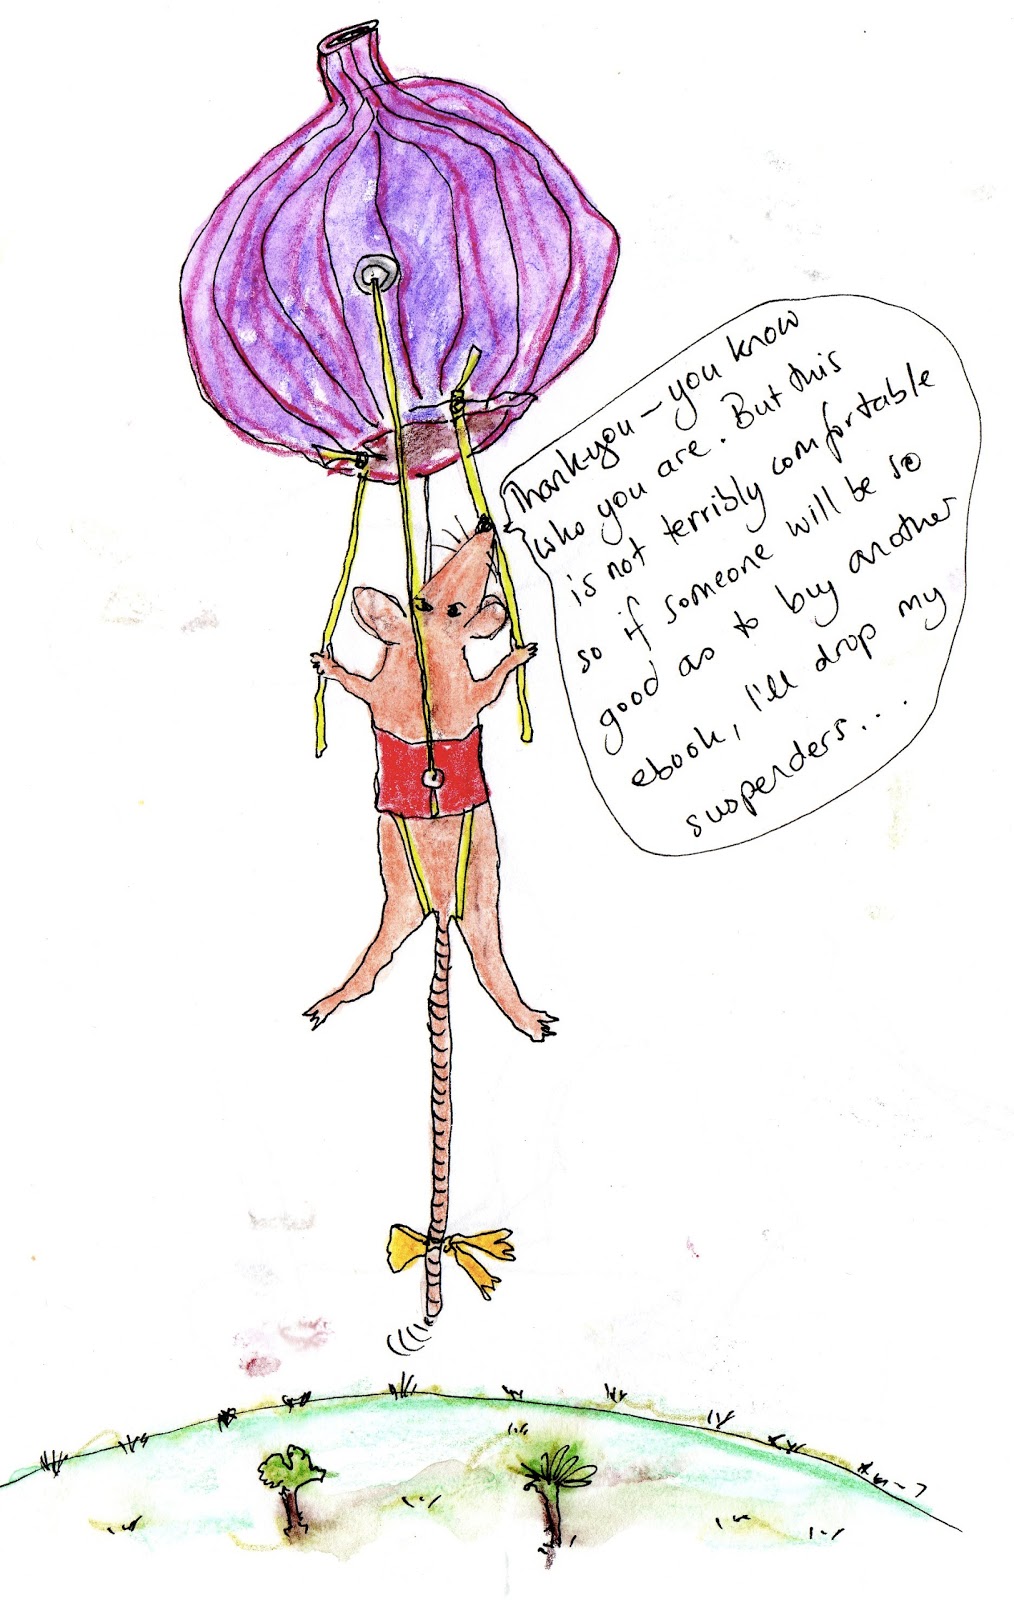 Thank-you - you know
who you are. But this
is not terribly comfortable
so if someone will be so
good as to buy another
ebook, I'll drop my
suspenders...